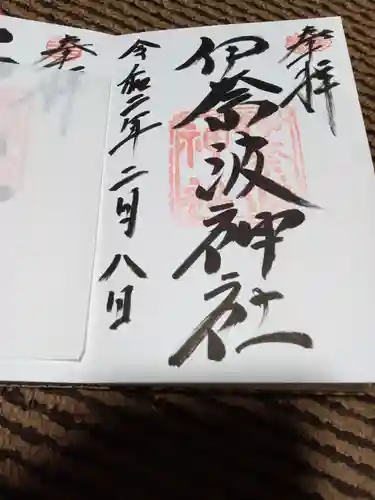 奉拝
伊奈波神社
令和二年二月八日
奉